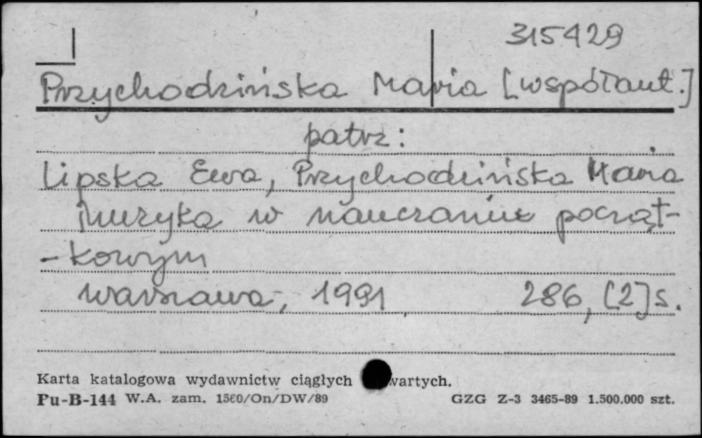 315429
Przychodzińska Maria [współaut.]
patrz:
Lipska Ewa, Przychodzińska Maria
Muzyka w nauczaniu począt-
-kowym
Warszawa, 1991 286, [2] s.
Karta katalogowa wydawnictw ciągłych wartych.
Pu-B-144 W.A. zam. 1560/On/DW/89 GZG Z-3 3465-89 1.500.000 szt.